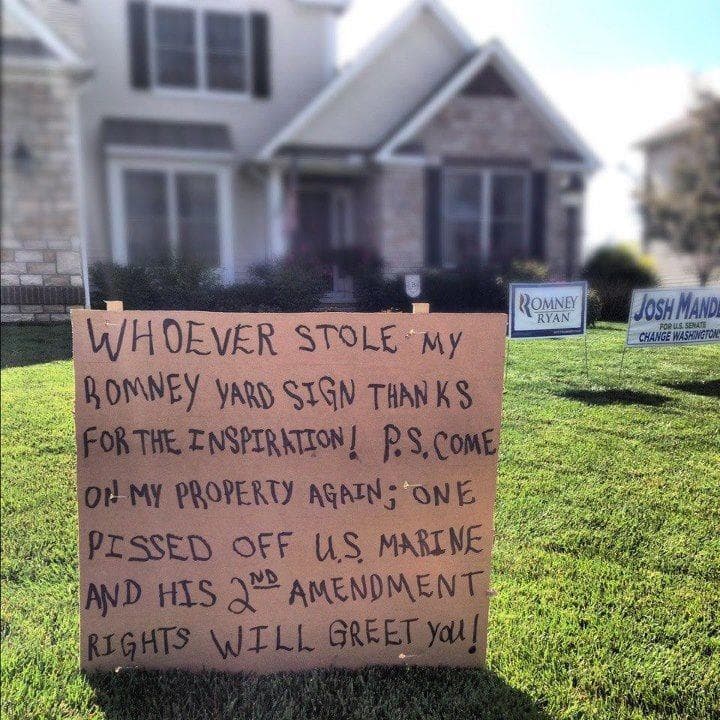 WHOEVER STOLE MY
ROMNEY YARD SIGN THANKS
FOR THE INSPIRATION! P.S. COME
ON MY PROPERTY AGAIN; ONE
PISSED OFF U.S. MARINE
AND HIS 2ND AMENDMENT
RIGHTS WILL GREET YOU!
ROMNEY
RYAN
JOSH MANDE
FOR U.S. SENATE
CHANGE WASHINGTON